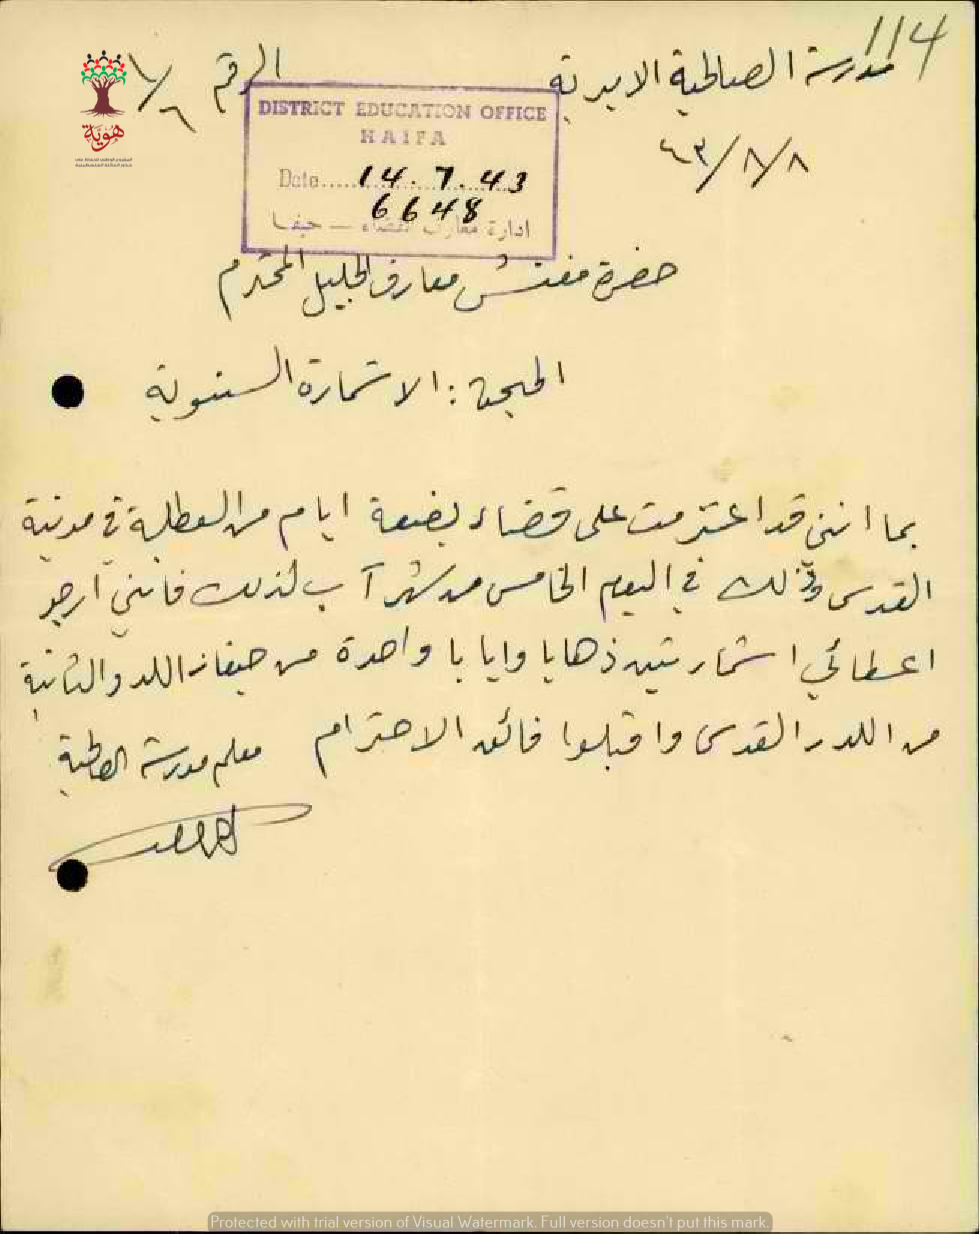 114
مدرسة الصالحية الاميرية
الرقم ٦/١
هوية
DISTRICT EDUCATION OFFICE
HAIFA
Date......14.7.43
6648
ادارة معارف لقضاء — حيفا
٨/٨/٤٣
حضرة مفتش معارف الجليل المحترم
المبحث : الاستمارة السنوية
بما انني قد اعتزمت على قضاء بضعة ايام من العطلة في مدينة
القدس وذلك في اليوم الخامس من شهر آب لذلك فانني ارجو
اعطائي استمارتين ذهابا وايابا واحدة من حيفا للد والثانية
من اللد للقدس واقبلوا فائق الاحترام
معلم مدرسة الصالحية
Protected with trial version of Visual Watermark. Full version doesn't put this mark.